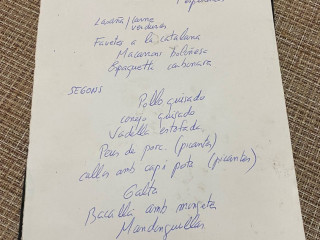 Lasaña/carne
verduras
Favetes a la catalana
Macarrons boloñesa
Espaguetti carbonara
SEGONS
Pollo guisado
conejo guisado
Vadella estofada
Peus de porc (picantes)
callos amb cap i pota (picantes)
Galta
Bacallà amb mongeta
Mandonguilles